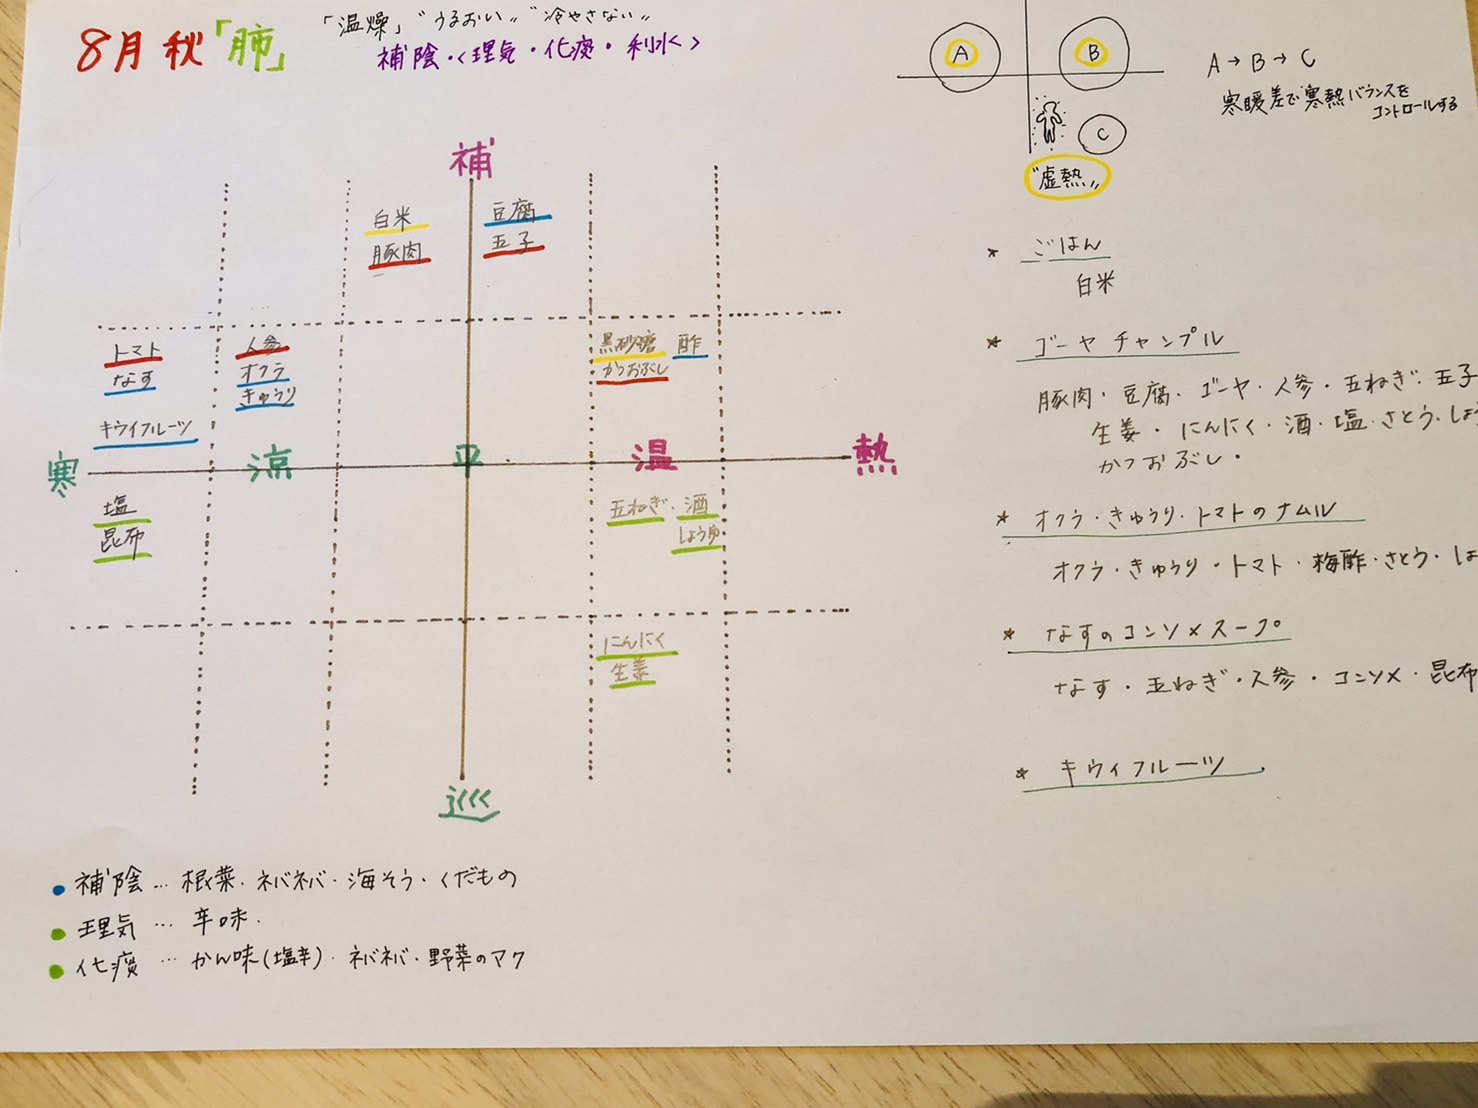 8月 秋「肺」
「温燥」〝うるおい〟〝冷やさない〟
補陰・〈理気・化痰・利水〉
A
B
C
〝虚熱〟
A→B→C
寒暖差で寒熱バランスを
コントロールする
補
白米
豚肉
豆腐
玉子
トマト
なす
キウイフルーツ
人参
オクラ
きゅうり
黒砂糖 酢
かつおぶし
寒
涼
平
温
熱
塩
昆布
玉ねぎ・酒
しょうゆ
にんにく
生姜
巡
* ごはん
白米
* ゴーヤチャンプル
豚肉・豆腐・ゴーヤ・人参・玉ねぎ・玉子
生姜・にんにく・酒・塩・さとう・しょう
かつおぶし・
* オクラ・きゅうり・トマトのナムル
オクラ・きゅうり・トマト・梅酢・さとう・しょ
* なすのコンソメスープ
なす・玉ねぎ・人参・コンソメ・昆布
* キウイフルーツ
● 補陰…根菜・ネバネバ・海そう・くだもの
● 理気…辛味・
● 化痰…かん味(塩辛)・ネバネバ・野菜のアク